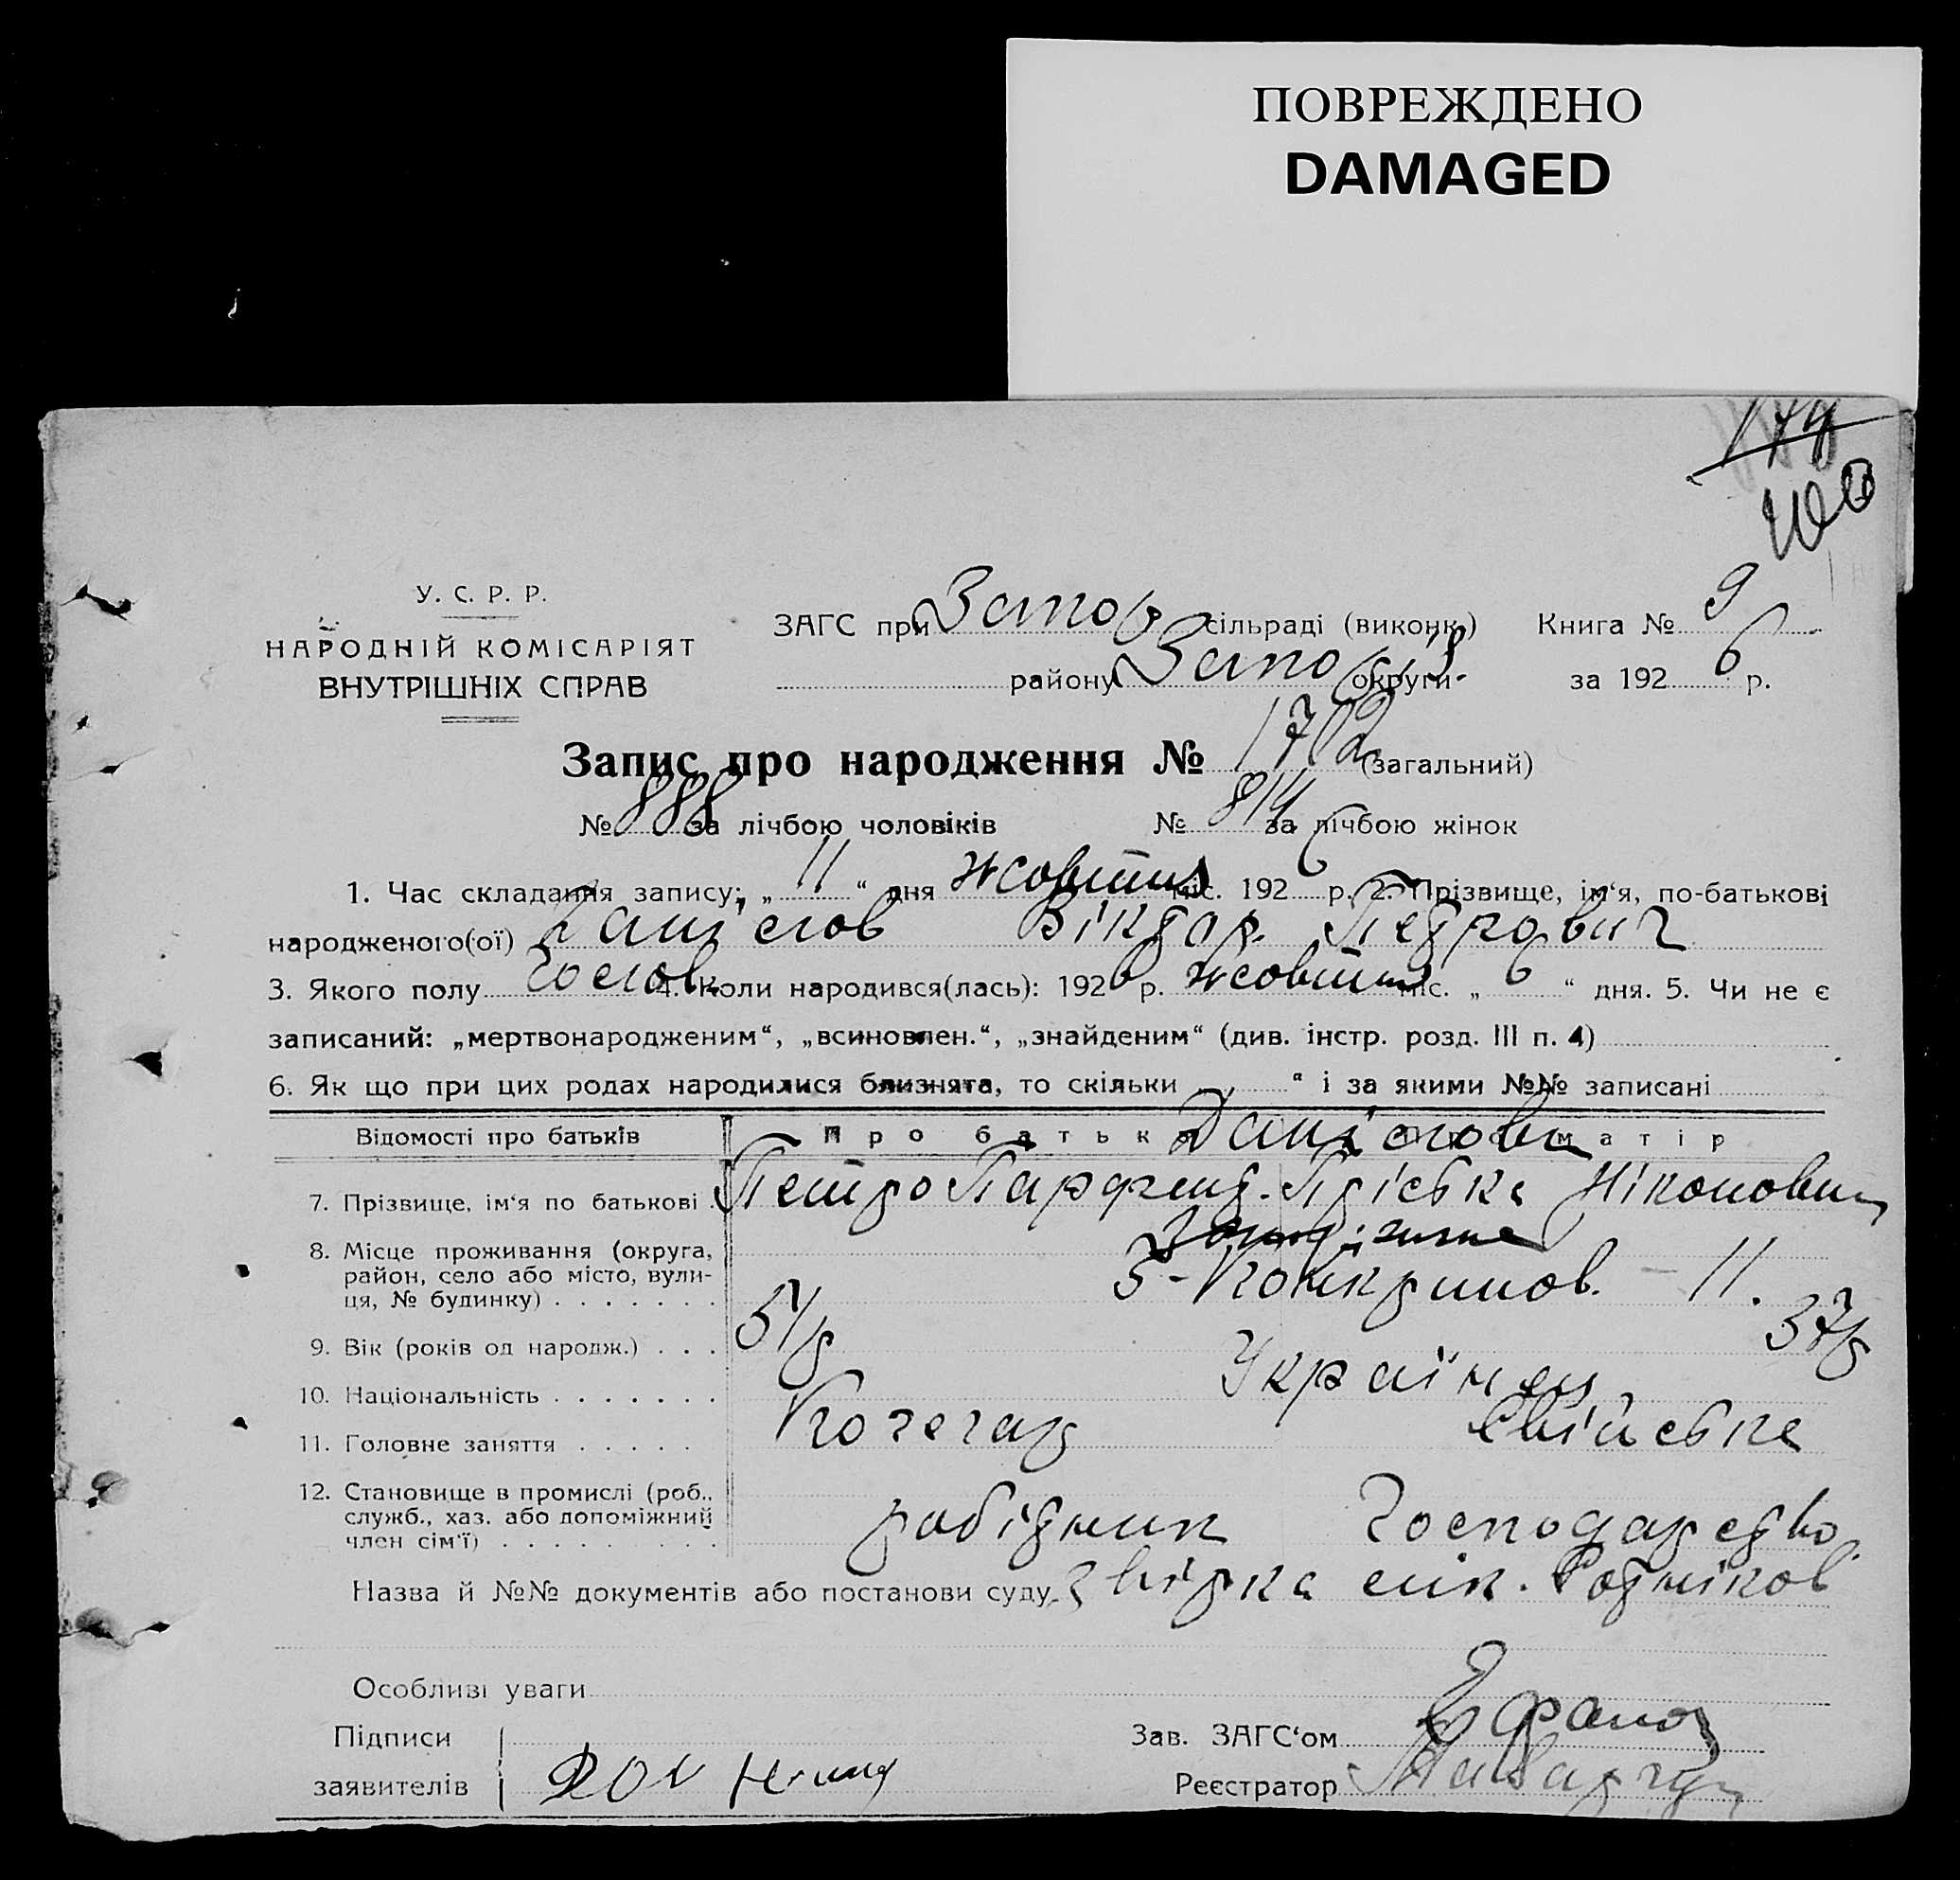 ПОВРЕЖДЕНО
DAMAGED
У. С. Р. Р.
НАРОДНІЙ КОМІСАРІЯТ
ВНУТРІШНІХ СПРАВ
ЗАГС при Запор сільраді (виконк.) Книга № 9
району Запор округи за 1926 р.
Запис про народження № 1702 (загальний)
№ 888 за лічбою чоловіків № 814 за лічбою жінок
1. Час складання запису: „ 11 “ дня жовтня міс. 1926 р. 2. Прізвище, ім‘я, по-батькові
народженого(ої) Віктор Петрович
3. Якого полу 4. Коли народився(лась): 1926 р. жовтня міс. „ 6 “ дня. 5. Чи не є
записаний: „мертвонародженим“, „всиновлен.“, „знайденим“ (див. інстр. розд. III п. 4)
6. Як що при цих родах народилися близнята, то скільки “ і за якими №№ записані
Відомості про батьків Про батька матір
7. Прізвище, ім‘я по батькові Петро
8. Місце проживання (округа,
район, село або місто, вули-
ця, № будинку) 11.
9. Вік (років од народж.) 51 37
10. Національність Українці
11. Головне заняття Кочегар
12. Становище в промислі (роб.,
служб., хаз. або допоміжний
член сім‘ї) робітник господарство
Назва й №№ документів або постанови суду
Особливі уваги
Підписи
заявителів
Зав. ЗАГС‘ом
Реєстратор